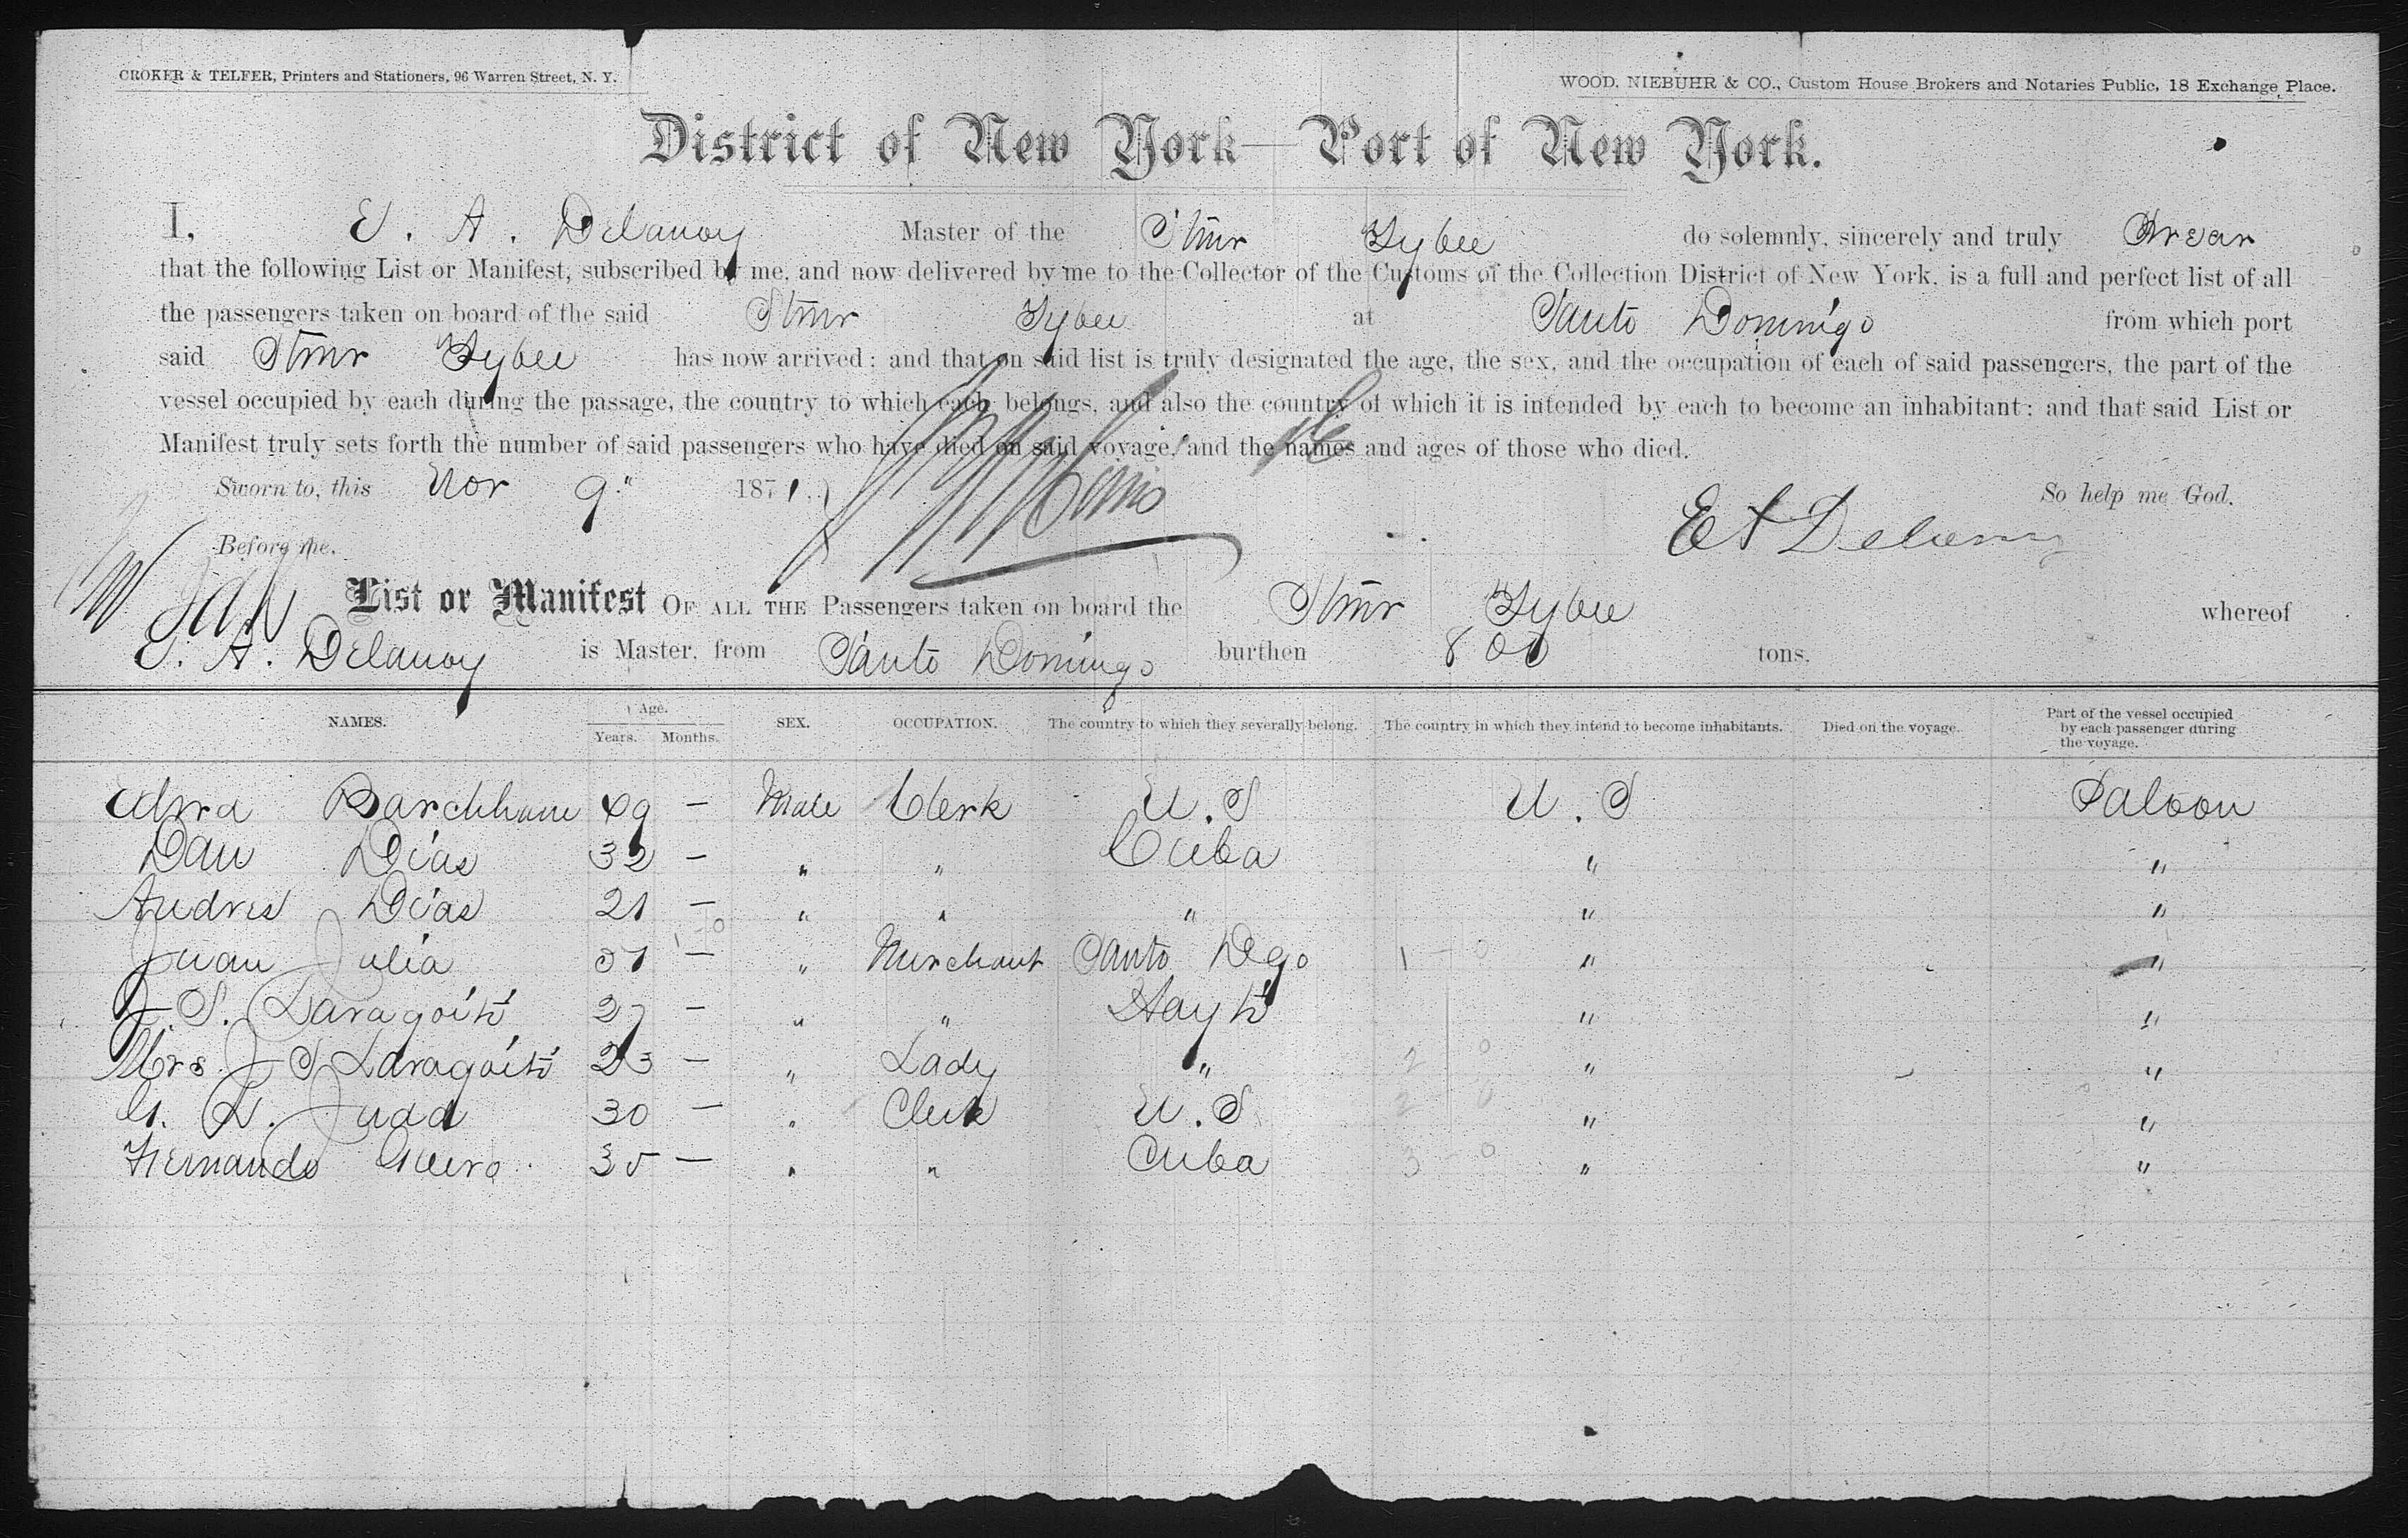 CROKER & TELFER, Printers and Stationers, 96 Warren Street, N. Y.
WOOD, NIEBUHR & CO., Custom House Brokers and Notaries Public, 18 Exchange Place.
District of New York—Port of New York.
I, E. A. Delanoy Master of the Stmr Tybee do solemnly, sincerely and truly Swear
that the following List or Manifest, subscribed by me, and now delivered by me to the Collector of the Customs of the Collection District of New York, is a full and perfect list of all
the passengers taken on board of the said Stmr Tybee at Santo Domingo from which port
said Stmr Tybee has now arrived: and that on said list is truly designated the age, the sex, and the occupation of each of said passengers, the part of the
vessel occupied by each during the passage, the country to which each belongs, and also the country of which it is intended by each to become an inhabitant; and that said List or
Manifest truly sets forth the number of said passengers who have died on said voyage, and the names and ages of those who died.
Sworn to, this Nov 9" 1871. So help me God.
Before me. E A Delanoy
List or Manifest OF ALL THE Passengers taken on board the Stmr Tybee whereof
E. A. Delanoy is Master, from Santo Domingo burthen 800 tons.
NAMES. Age. Years. Months. SEX. OCCUPATION. The country to which they severally belong. The country in which they intend to become inhabitants. Died on the voyage. Part of the vessel occupied by each passenger during the voyage.
49 — Male Clerk U. S U. S Saloon
Dan Dias 32 — " " Cuba " "
Andres Dias 21 — " " " " "
Juan Julia 37 — " Merchant Santo Dgo " "
J. S. Laragoiti 27 — " " Hayti " "
Mrs J S Laragoiti 23 — " Lady " " "
G. L. Judd 30 — " Clerk U. S " "
Hernando 35 — " " Cuba " "